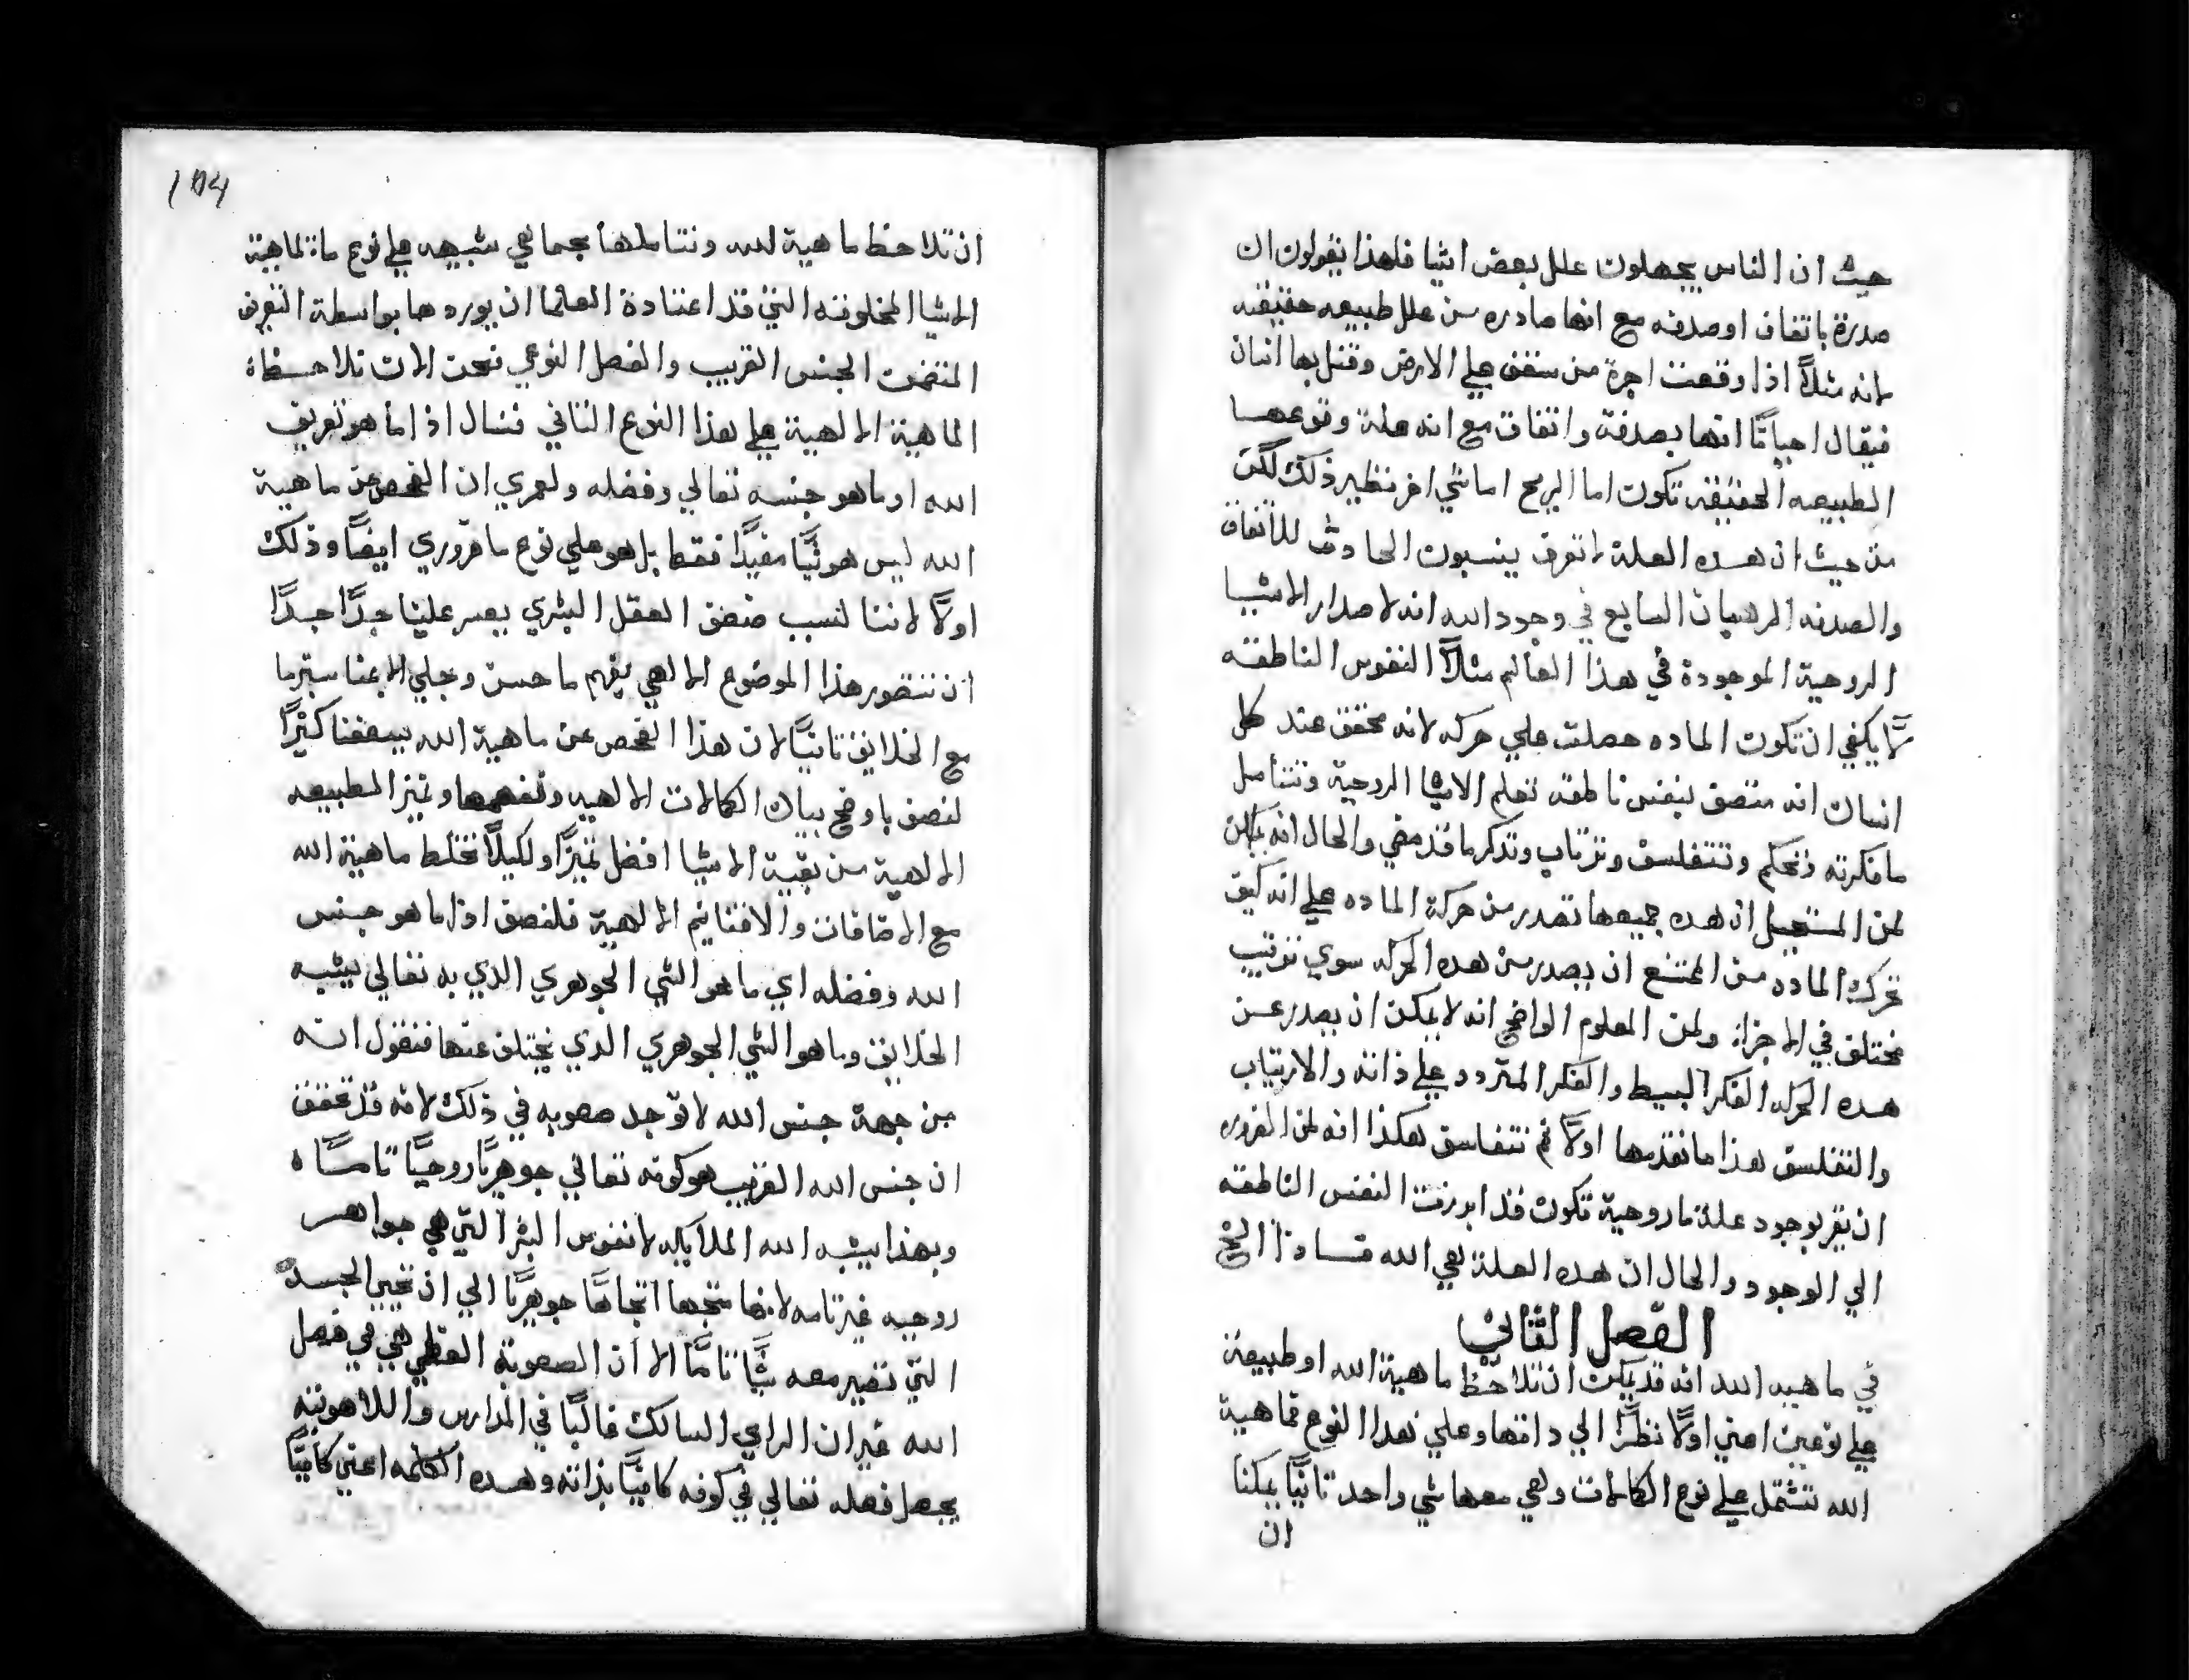 حيث ان الناس يجهلون علل بعض اشيا فلهذا يقولون ان
صدرة باتفاق او صدفه مع انها صادره من علل طبيعيه حقيقيه
لانه مثلاً اذا وقعت اجرة من سقف علي الارض وقتل بها انسان
فيقال احياناً انها بصدفة واتفاق مع انه علة وقوعها
الطبيعيه الحقيقيه تكون اما الريح اما شي اخر نظير ذلك لكن
من حيث ان هذه العلة لا تعرف ينسبون الحادث للاتفاق
والصدفه البرهان السابع في وجود الله انه لاصدار الاشيا
الروحية الموجودة في هذا العالم مثلاً النفوس الناطقه
لا يكفي ان تكون الماده حصلت علي حركه لانه محقق عند كل
انسان انه متصف بنفس ناطقه تعلم الاشيا الروحية وتتأمل
ما فكرته وتحكم وتتفلسف وترتاب وتذكر ما قد مضي والحال انه
لمن المستحيل ان هده جميعها تصدر من حركة الماده علي انه كيف
تحركت الماده من الممتنع ان يصدر من هده الحركه سوي ترتيب
مختلف في الاجزاء ولمن المعلوم الواضح انه لا يمكن ان يصدر عن
هده الحركه الفكر البسيط والفكر المتردد علي ذاته والارتياب
والتفلسف هذا ما نقدمها اولاً ثم نتفلسف هكذا انه لمن الضروره
ان يقر بوجود علة ما روحية تكون قد ابرزت النفس الناطقه
الي الوجود والحال ان هده العلة هي الله فاذا الخ
الفصل الثاني
في ماهيه الله انه قد يمكن ان تلاحظ ماهية الله او طبيعته
علي نوعين اعني اولاً نظراً الي داتها وعلي هدا النوع فماهية
الله تشتمل علي نوع الكمالات وهي معها شي واحد ثانياً يمكنا
ان
104
ان تلاحظ ماهية لله ونتاملها بجما هي شبيهه علي نوع ما بماهية
الاشيا المخلوقه التي قد اعتادة العلما ان يوردها بواسطة التعريف
المتضمن الجنس القريب والفصل النوعي فنحن الان نلاحظ
الماهية الالهية علي هذا النوع الثاني فنسال اذا ما هو تعريف
الله او ما هو جنسه تعالي وفصله ولعمري ان الفحص عن ماهية
الله ليس هو شياً مفيداً فقط بل هو علي نوع ما ضروري ايضاً وذلك
اولاً لاننا لسبب ضعف العقل البشري يعسر علينا جداً جداً
ان نتصور هذا الموضوع الالهي بفهم ما حسن وجلي الا بمناسبة ما
مع الخلايق ثانياً لان هذا الفحص عن ماهية الله يسعفنا كثيراً
لنصف باوضح بيان الكمالات الالهيه ونفهمها ونميز الطبيعه
الالهية من بقية الاشيا افضل تميزاً ولكيلا تختلط ماهية الله
مع الاضافات والاقانيم الالهية فلنصف اذا ما هو جنس
الله وفصله اي ما هو الشي الجوهري الدي به تعالي يشبه
الخلايق وما هو الشي الجوهري الدي يختلف عنها فنقول انه
من جهة جنس الله لا توجد صعوبه في ذلك لانه قد تحقق
ان جنس الله القريب هو كونه تعالي جوهراً روحياً تاماً
وبهذا يشبه الله الملايكه لا نفوس البشر التي هي جواهر
روحيه غير تامه لانها متجها اتجاهاً جوهرياً الي ان تحيي الجسد
التي تصير معه شياً تاماً الا ان الصعوبة العظمي هي في فصل
الله غير ان الراي السالك غالباً في المدارس واللاهوتيه
يجعل فصله تعالي في كونه كاينياً بذاته وهده الكلمه اعني كاينياً